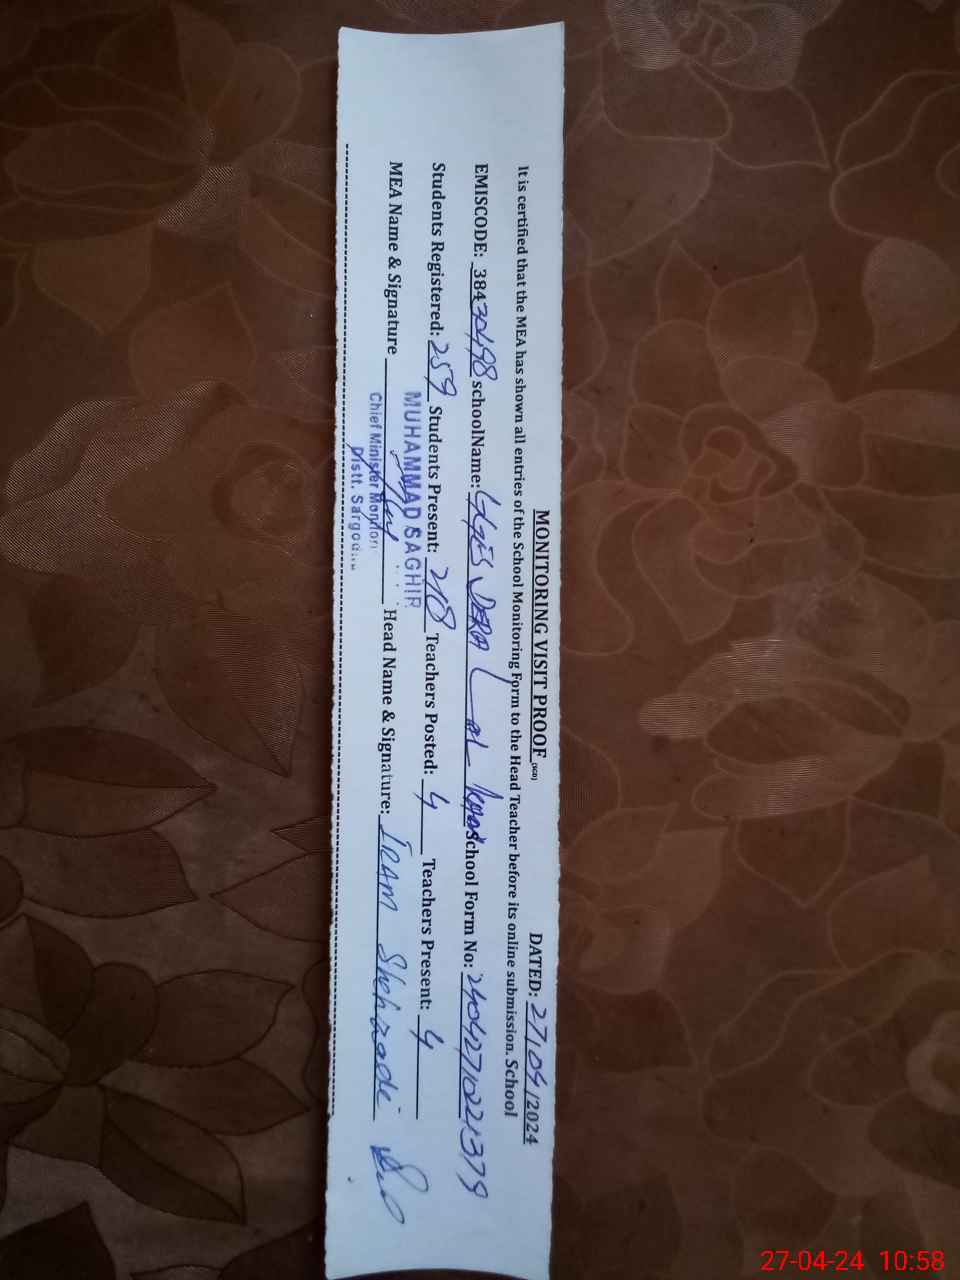 MONITORING VISIT PROOF (SGD)
DATED: 27/04/2024
It is certified that the MEA has shown all entries of the School Monitoring Form to the Head Teacher before its online submission. School
EMISCODE: 38430498 schoolName: GGPS DERA Lal School Form No: 2404271021379
Students Registered: 259 Students Present: 218 Teachers Posted: 4 Teachers Present: 4
MUHAMMAD SAGHIR
MEA Name & Signature Head Name & Signature: IRAM Shehzadi
Chief Minister Monitori
Distt. Sargodha
27-04-24 10:58